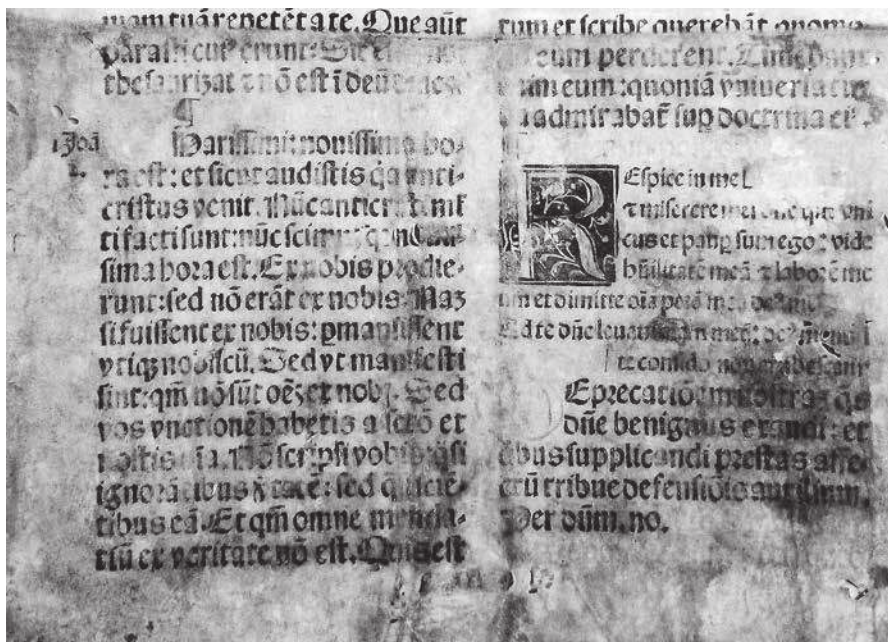 tuã repetẽt a te. Que aũt
parasti cui⁹ erunt: Sic est
thesaurizat ⁊ nõ est ĩ deũ
¶
1 Joã
Karissimi: nouissima ho-
2.
ra est: et sicut audistis q̃a anti-
cristus venit. Nũc anticristi ml̃
ti facti sunt: nũc scim⁹ q̃ nouis-
sima hora est. Ex nobis prodie-
runt: sed nõ erãt ex nobis. Naꝫ
si fuissent ex nobis: ꝑmansissent
vtiqꝫ nobiscũ. Sed vt manifesti
sint: qm̃ nõ sũt oẽs ex nob̃. Sed
vos vnctionẽ habetis a sctõ et
nostis oĩa. Nõ scripsi vob̃ q̃si
ignorãtibus ṽitatẽ: sed q̃si sciẽ-
tibus eã. Et qm̃ omne menda-
tiũ ex veritate nõ est. Quis est
rum et scribe querebãt quomo-
eum perderent. Timebant
eum: quoniã vniuersa tur-
admirabat̃ suꝑ doctrina ei⁹.
REspice in me
⁊ miserere mei dñe qm̃ vni
cus et pauꝑ sum ego: vide
hũilitatẽ meã ⁊ laborẽ me
um et dimitte oĩa pctã mea de⁹ me⁹
Ad te dñe leuaui aĩam meã: de⁹ me⁹ ĩ
te confido non erubescam
DEprecatiõem nostrã q̃s
dñe benignus exaudi: et
q̃bus supplicandi prestas affe-
ctũ tribue defensiõis auxilium.
Per dñm. no.